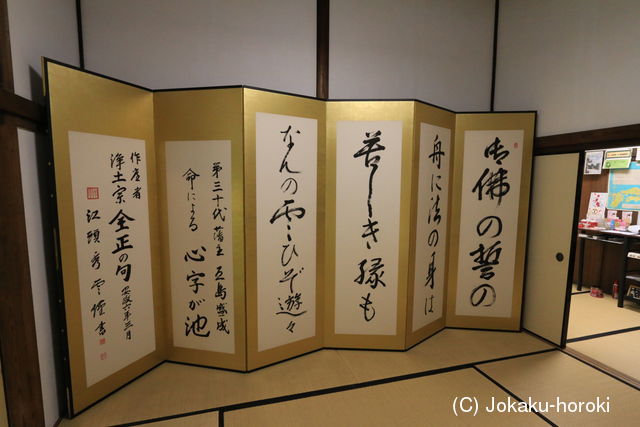 御佛の誓の
舟に法の身は
苦しき縁も
なんの雲ひぞ遊々
第三十代藩主五島盛成
命による
心字が池
作庭者
浄土宗全正の句
安政六年三月
江頭秀雲僊書
(C) Jokaku-horoki